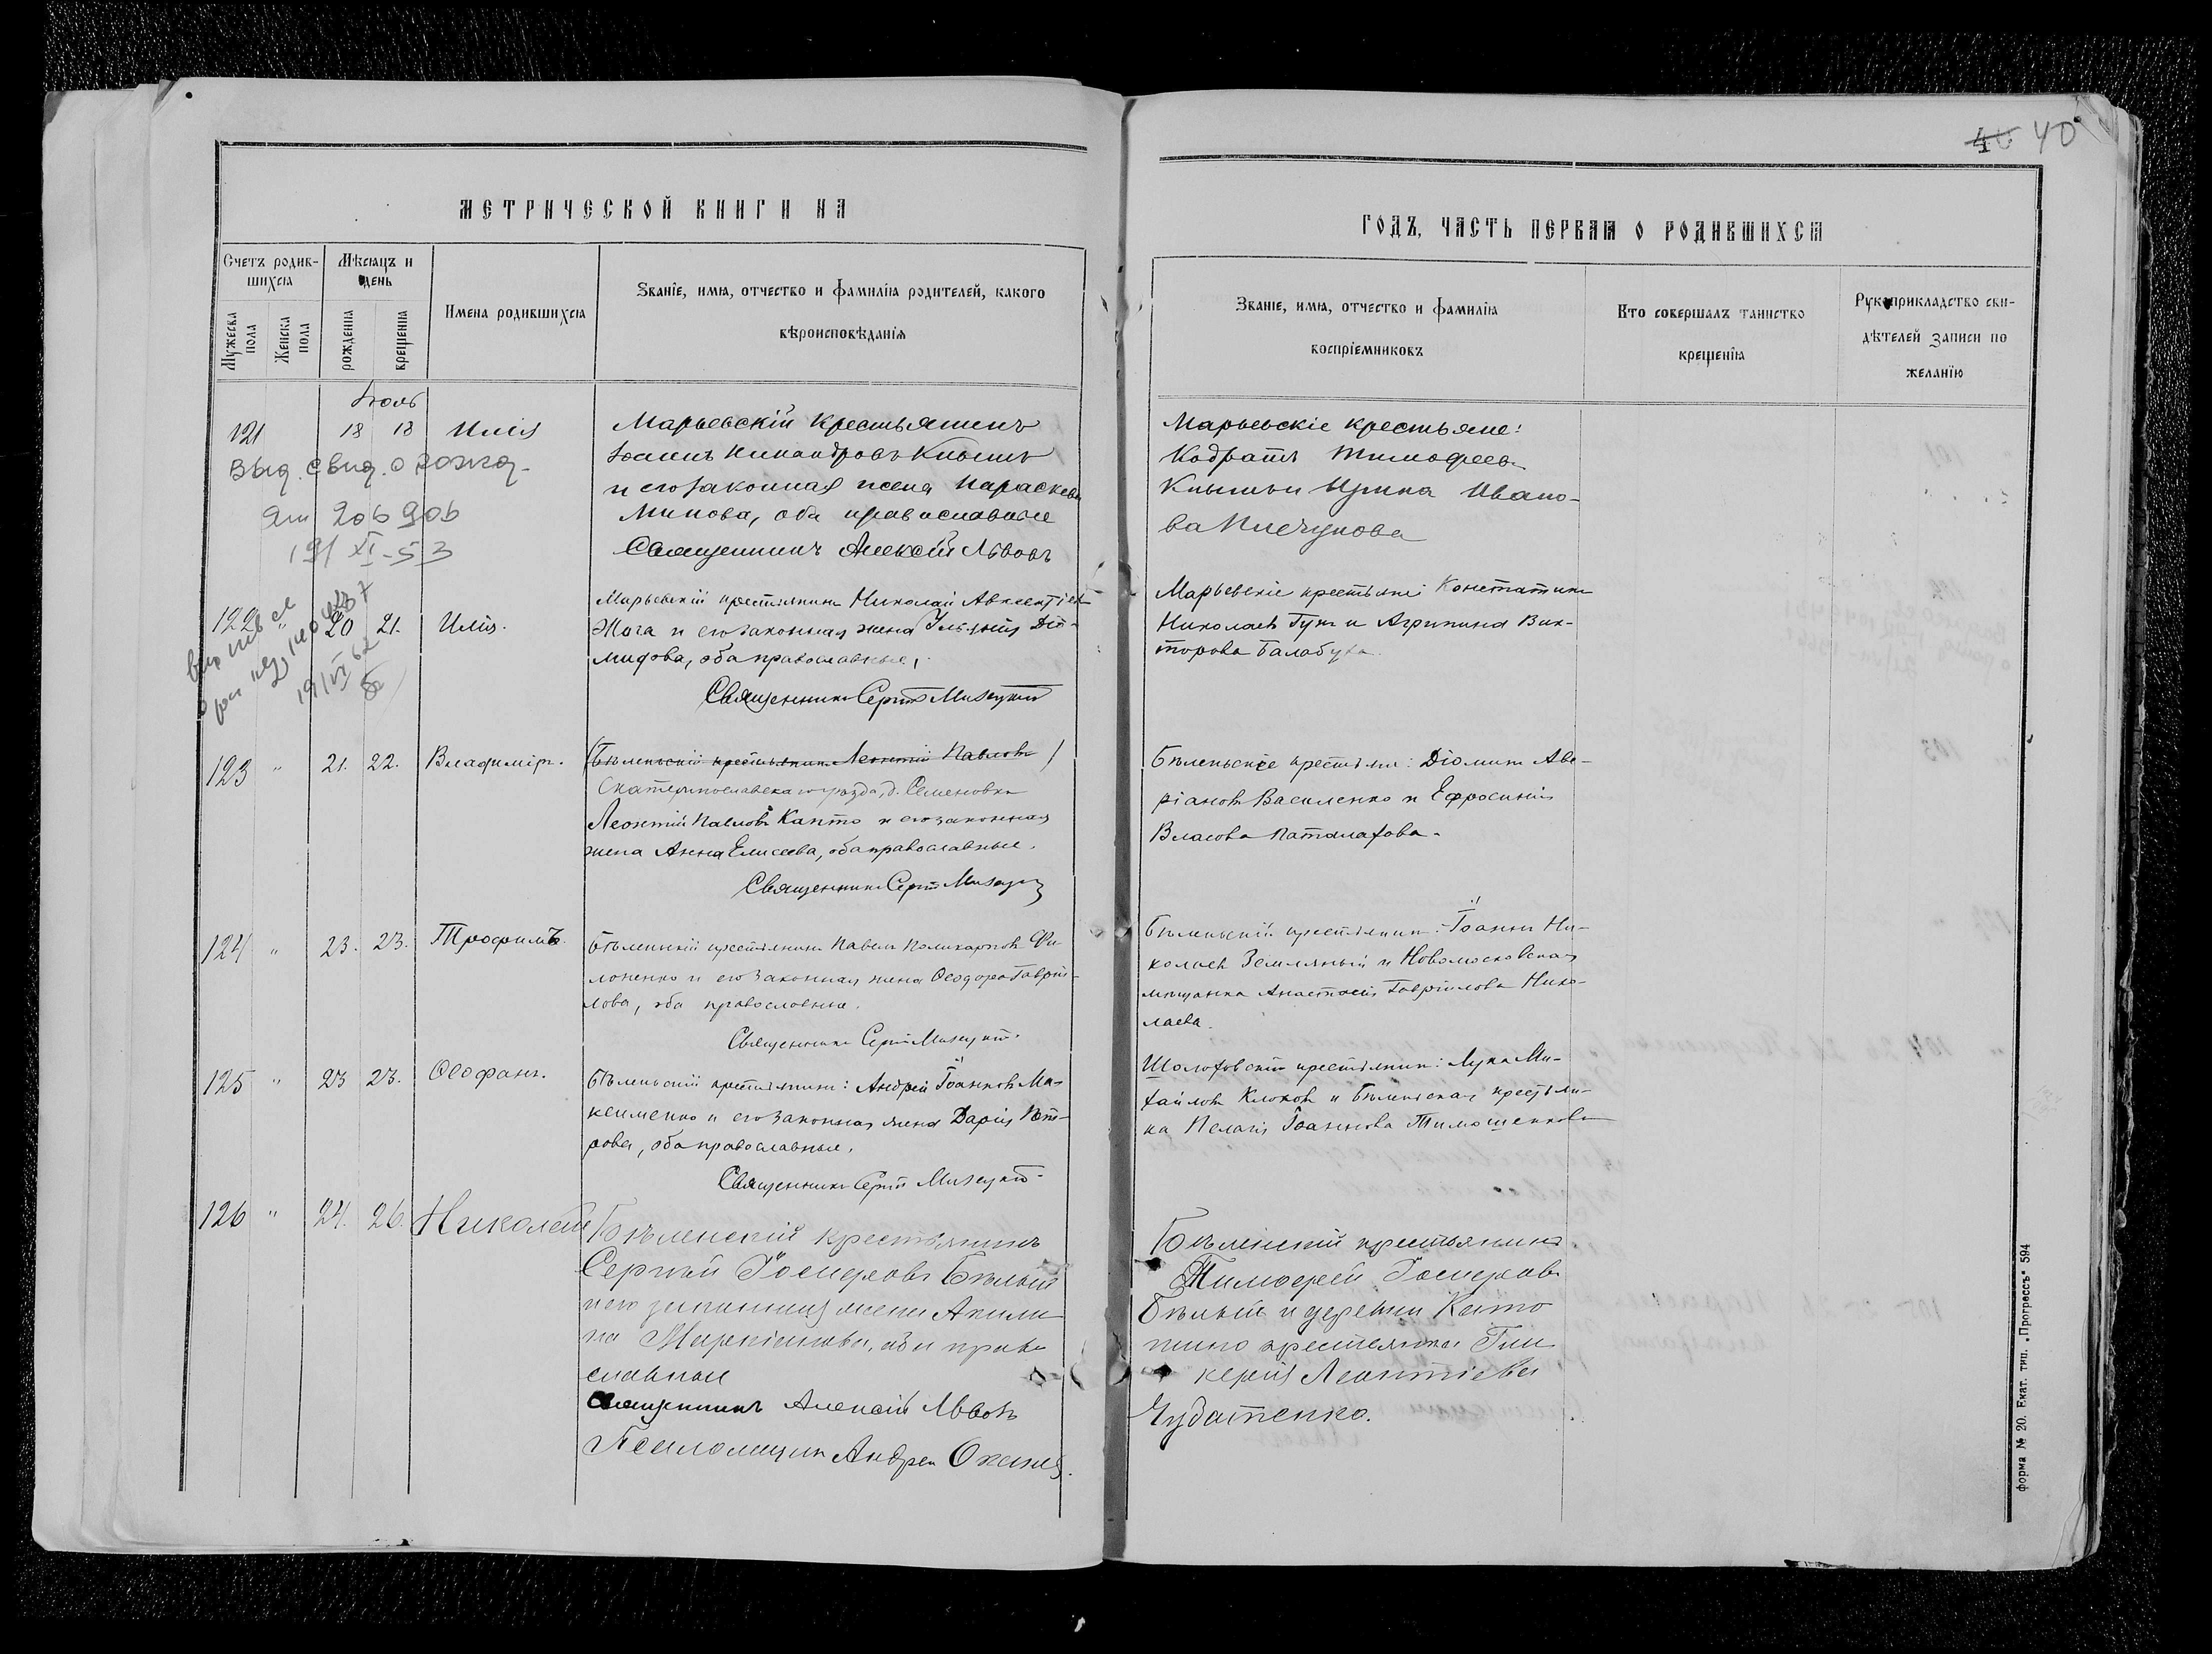 40
МЕТРИЧЕСКОЙ КНИГИ НА
ГОДЪ, ЧАСТЬ ПЕРВАЯ О РОДИВШИХСЯ
Счетъ родив-
шихся
Мѣсяцъ и
день
Мужеска
пола
Женска
пола
рожденія
крещенія
Имена родившихся
Званіе, имя, отчество и фамилія родителей, какого
вѣроисповѣданія
Званіе, имя, отчество и фамилія
воспріемниковъ
Кто совершалъ таинство
крещенія
Рукоприкладство сви-
дѣтелей записи по
желанію
Іюль
121 18 18 Илія
Выд. свид. о рожд.
206 906
191 XI-53
Марьевскій крестьянинъ
Іоаннъ Никандровъ
и его законная жена Параскева
Минова, оба православные
Священникъ Алексій Львовъ
Марьевскіе крестьяне:
Кодратъ Тимофеевъ
Ирина Ивано-
ва
122 " 20 21. Илія.
19/VI 62
Марьевскій крестьянинъ Николай Авксентіев
и его законная жена Діо-
мидова, оба православные,
Священникъ Сергій Мизецкій
Марьевскіе крестьяне: Констатинъ
Николаевъ Гужъ и Агрипина Вик-
торова Балабуха.
123 " 21. 22. Владиміръ.
(Бѣленьскій крестьянинъ Леонтій Павловъ)
Екатеринославскаго уѣзда, д. Семеновки
Леонтій Павловъ Капто и его законная
жена Анна Елисеева, оба православные.
Священникъ Сергій Мизецкій
Бѣленьскіе крестьяне: Діомидъ Аве-
ріановъ Василенко и Ефросинія
Власова Паталахова.
124 " 23. 23. Трофимъ.
Бѣленьскій крестьянинъ Павелъ Поликарповъ Фи-
лоненко и его законная жена Ѳеодора Гаврі-
лова, оба православные.
Священникъ Сергій Мизецкій.
Бѣленьскій крестьянинъ: Іоаннъ Ни-
колаевъ Земляный и Новомосковская
мѣщанка Анастасія Гавріилова Нико-
лаева.
125 " 23 23. Ѳеофанъ.
Бѣленьскій крестьянинъ: Андрей Іоанновъ Ма-
ксименко и его законная жена Дарія Пет-
рова, оба православные.
Священникъ Сергій Мизецкій.
Шолоховскій крестьянинъ: Лука Ми-
хайловъ Клоковъ и Бѣленьская крестьян-
ка Пелагія Іоаннова Тимошенкова
126 " 24. 26. Николай
Бѣленскій крестьянинъ
Сергій Іосифовъ Бѣлый
и его законная жена Акили-
на Маркіанова, оба право
славные
Священникъ Алексій Львовъ
Псаломщикъ Андрей
Бѣленскій крестьянинъ
Тимофей Іосифовъ
Бѣлый и деревни
крестьянка Гли
керія Леонтіева
Чудатенко.
форма № 20. Екат. тип. „Прогрессъ" 594